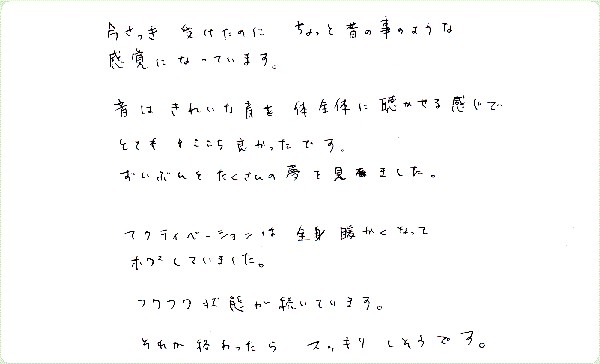 今さっき 受けたのに ちょっと昔の事のような
感覚になっています。
音は きれいな音を 体全体に 聴かせる感じで
とても 心地良かったです。
ずいぶんと たくさんの 夢を 見ました。
アクティベーションは 全身 暖かくなって
ポカポカしていました。
フワフワ状態が 続いています。
それが 終わったら スッキリ しそうです。